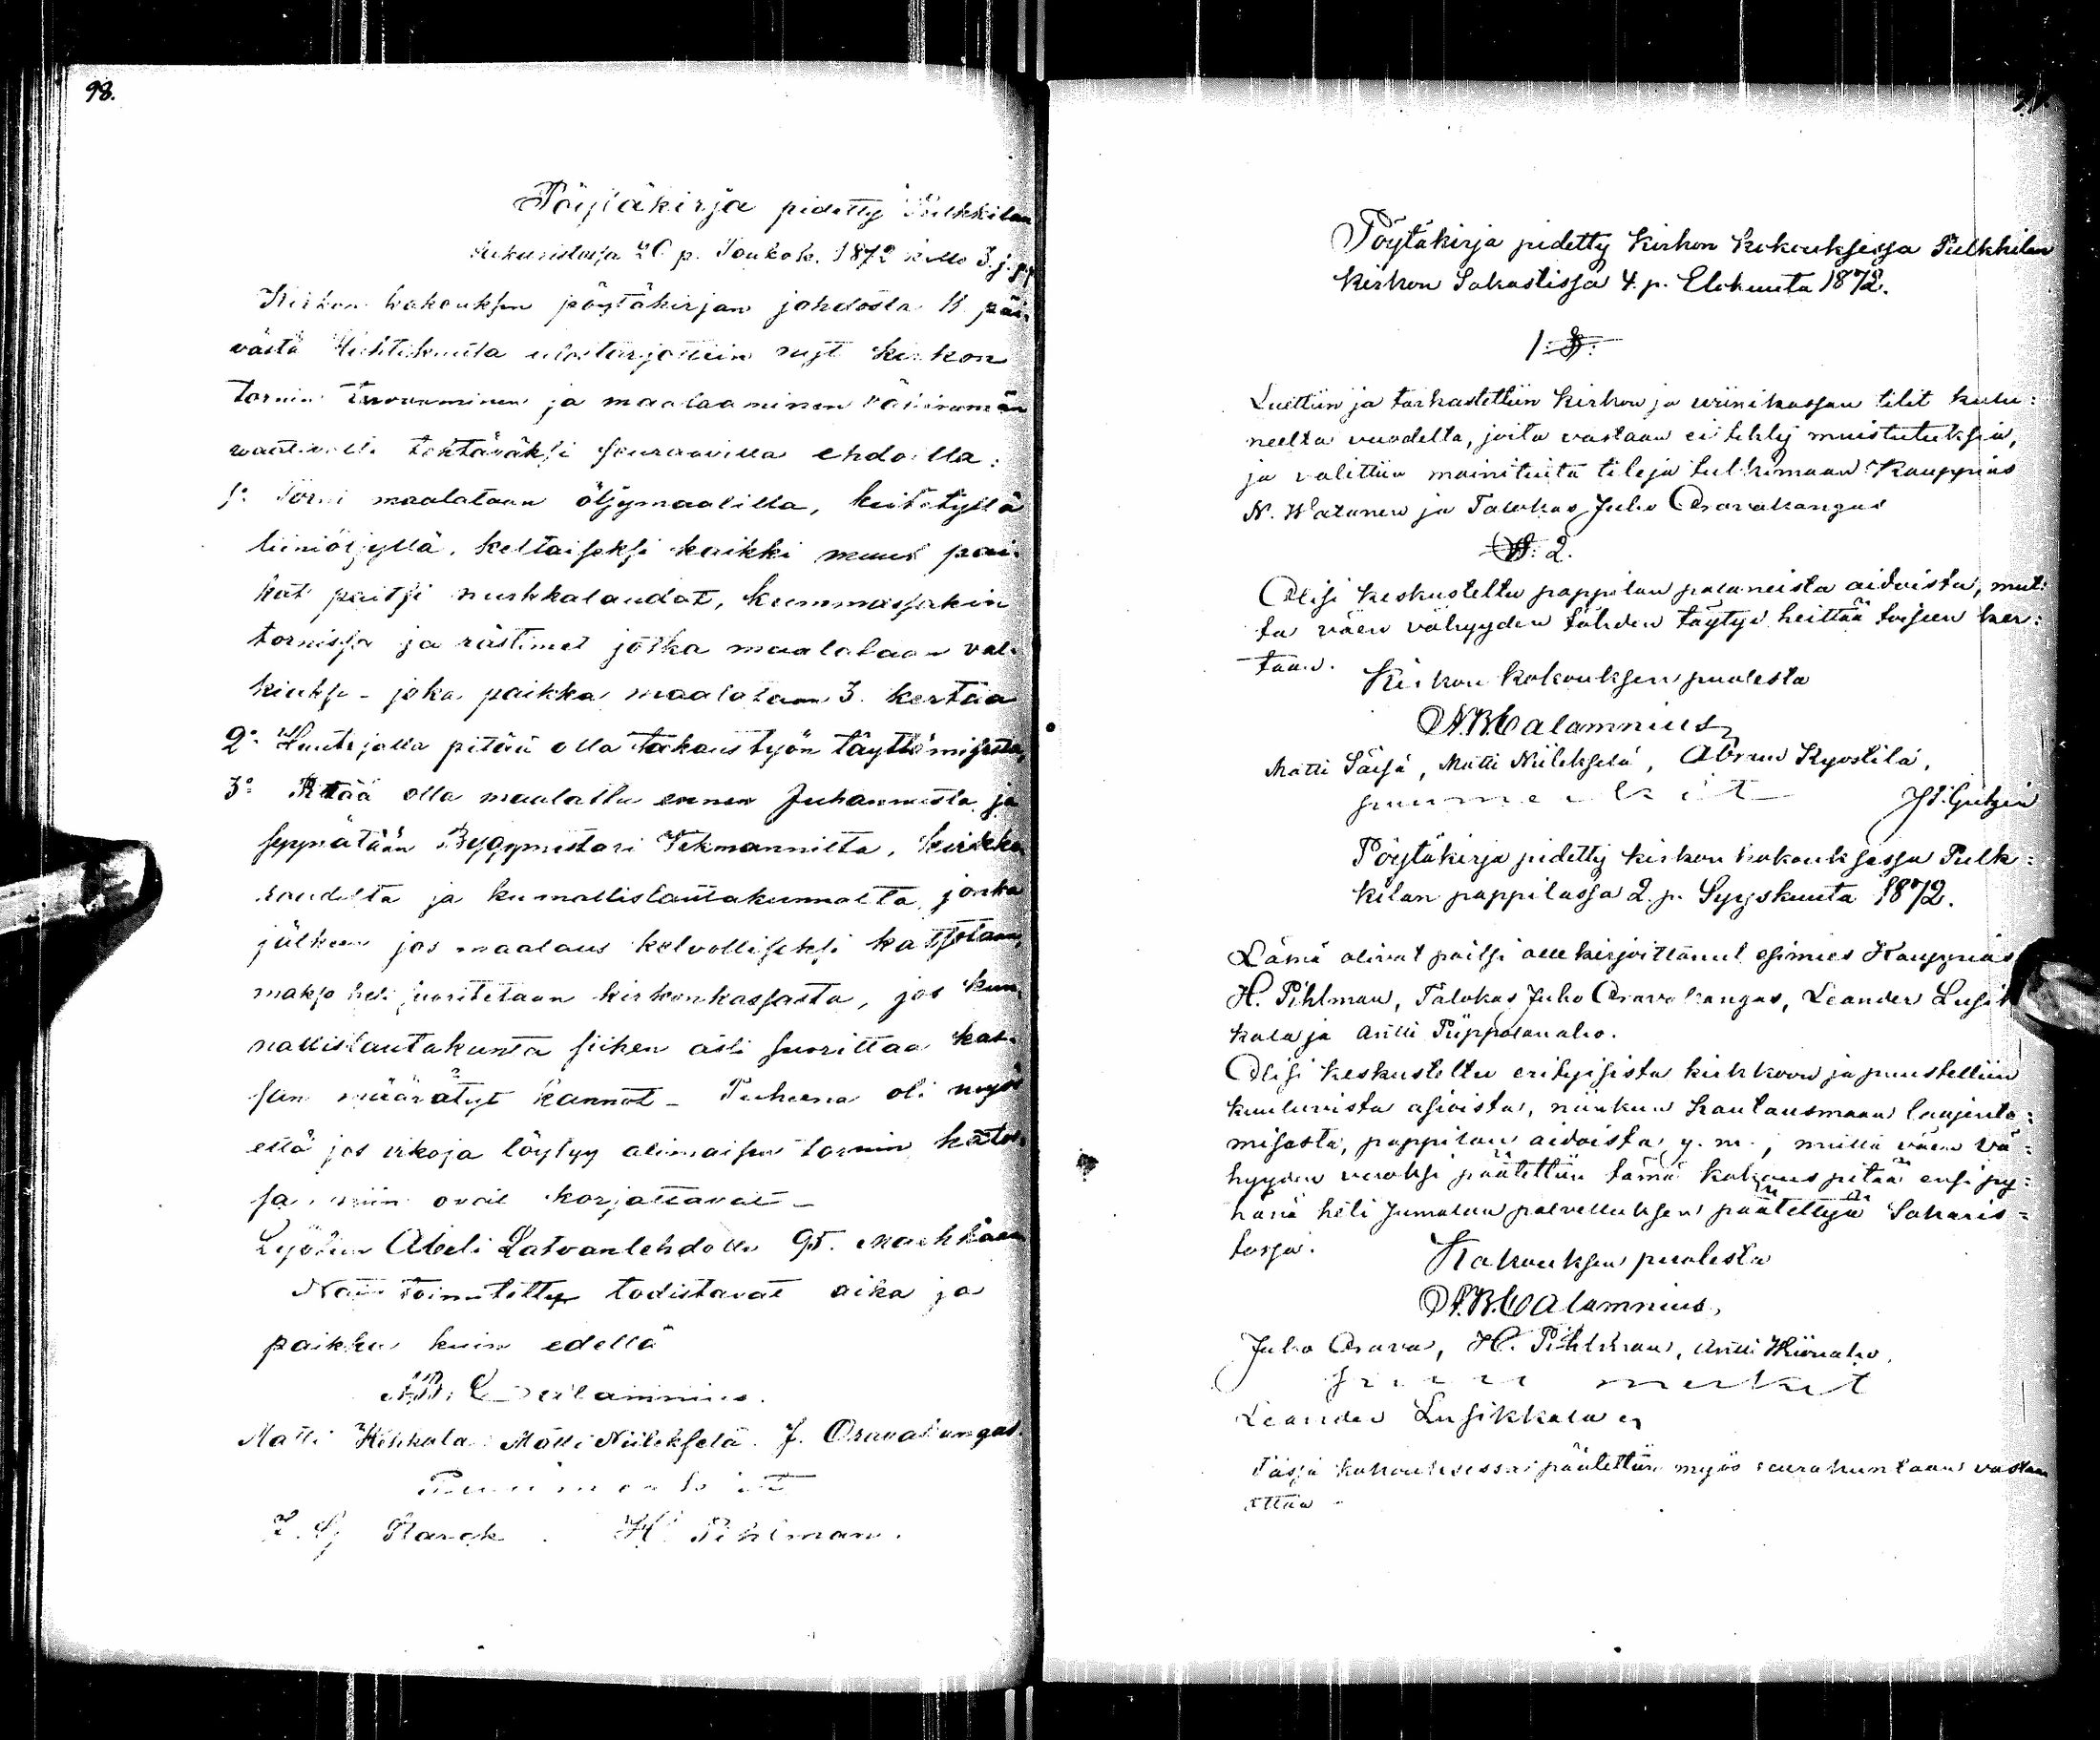 98.
Pöytäkirja pidetty Pulkkilan
sakaristossa 20 p. Toukok. 1872 kello 3. j. p.
Kirkon kokouksen pöytäkirjan johdosta 11 päi-
västä Huhtikuuta ulostarjottiin nyt kirkon
tornin ja maalaaminen vähimmän
vaativalle tehtäväksi seuraavilla ehdoilla:
1:o Torni maalataan öljymaalilla, keitetyllä
liiniöljyllä, keltaiseksi kaikki muut pai-
kat paitsi nurkkalaudat, kummassakin
tornissa ja rästimet jotka maalataan val-
kiaksi - joka paikka maalataan 3. kertaa
2:o Huutajalla pitää olla takaus työn täyttämisestä,
3:o Pitää olla maalattu ennen Juhannusta ja
synnätään Byggmestari Vekmannilta, kirkko
raadilta ja kunnallislautakunnalta, jonka
jälkeen jos maalaus kelvolliseksi katsotaan,
makso heti suoritetaan kirkonkassasta, jos kun-
nallislautakunta siihen asti suorittaa kas-
san määrätyt kannot - Puheena oli myös
että jos vikoja löytyy alimaisen tornin katos-
sa, niin ovat korjattavat -
Lyötiin Abeli Latvanlehdolle 95. markkaan
Näin toimitetty todistavat aika ja
paikka kuin edellä
N.B. Calamnius.
Matti Kihkala Matti Niilekselä. J. Oravakangas
Puumerkit
Z. Starck. H. Pihlman.
Pöytäkirja pidetty Kirkon kokouksessa Pulkkilan
Kirkon Sakastissa 4. p. Elokuuta 1872.
1. §.
Luettiin ja tarkastettiin kirkon ja viinikassan tilit kulu:
neelta vuodelta, joita vastaan ei tehty muistutuksia,
ja valittiin mainituita tilejä tutkimaan Kauppias
N. Watanen ja Talokas Juho Oravakangas
§. 2.
Olisi keskusteltu pappilan palaneista aidoista, mut:
ta väen vähyyden tähden täytyi heittää toiseen ker:
taan.
Kirkon kokouksen puolesta
N.B. Calamnius
Matti Säisä, Matti Niilekselä, Abram Kyöstilä,
puumerkit
Pöytäkirja pidetty kirkon kokouksessa Pulk:
kilan pappilassa 2. p. Syyskuuta 1872.
Läsnä olivat paitsi allekirjoittanut esimies Kauppias
H. Pihlman, Talokas Juho Oravakangas, Leander Lusik
kala ja Antti Piippolanaho.
Olisi keskusteltu erityisistä kirkkoon ja puustelliin
kuuluvista asioista, niinkuin hautausmaan laajenta:
misesta, pappilan aidoista y. m., mutta väen vä:
hyyden vuoksi päätettiin tämä kokous pitää ensi py:
hänä heti Jumalan palvelluksen päätettyä Sakaris=
tossa.
Kokouksen puolesta
N.B. Calamnius,
Juho Orava, H. Pihlman, Antti Kiiruaho,
puu merkit
Leander Lusikkala
Tässä kokouksessa päätettiin myös seurakuntaan vastaan
ottaa -